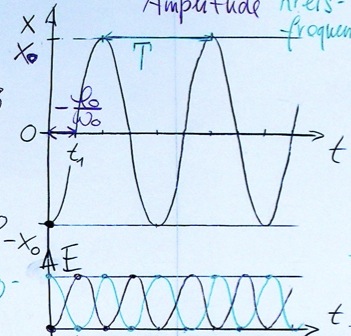 Amplitude Kreis-
frequen
x
x₀
T
-φ₀/ω₀
0
t₁
t
-x₀
E
t